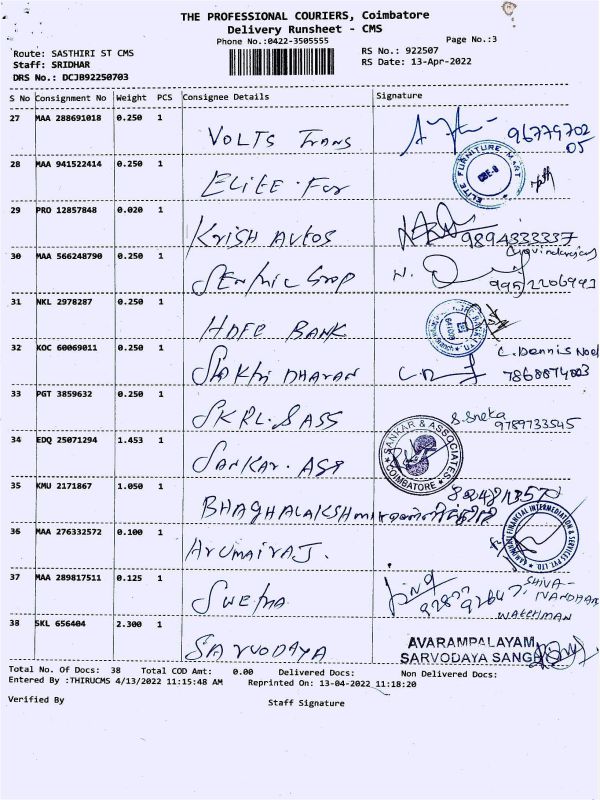 THE PROFESSIONAL COURIERS, Coimbatore
Delivery Runsheet - CMS
Phone No.:0422-3505555
Page No.:3
Route: SASTHIRI ST CMS
RS No.: 922507
Staff: SRIDHAR
RS Date: 13-Apr-2022
DRS No.: DCJB92250703
S No Consignment No Weight PCS Consignee Details Signature
27 MAA 288691018 0.250 1
VOLTS Trans 96779702
05
28 MAA 941522414 0.250 1
ELITE FURNITURE MART
CBE-9
ELITE. For
29 PRO 12857848 0.020 1
KRISH AUTOS 9894333337
30 MAA 566248790 0.250 1
N. 9952206993
31 NKL 2978287 0.250 1
HDFC BANK
32 KOC 60069011 0.250 1
C. Dennis Noel
Shakthi DHARAN 7868074003
33 PGT 3859632 0.250 1
S. Sneka
SKRL. SASS 9789733545
34 EDQ 25071294 1.453 1
SANKAR & ASSOCIATES
COIMBATORE
SANKAR. ASS
35 KMU 2171867 1.050 1
BHAGHALAKSHMI
36 MAA 276332572 0.100 1
FINANCIAL INTERMEDIATION & SERVICES PVT. LTD.
ARUMAIRAJ.
37 MAA 289817511 0.125 1
SHIVA-
NANDHAN
Swetha
WATCHMAN
38 SKL 656404 2.300 1
AVARAMPALAYAM
SARVODAYA SANGH
SARVODAYA
Total No. Of Docs: 38 Total COD Amt: 0.00 Delivered Docs: Non Delivered Docs:
Entered By :THIRUCMS 4/13/2022 11:15:48 AM Reprinted On: 13-04-2022 11:18:20
Verified By Staff Signature